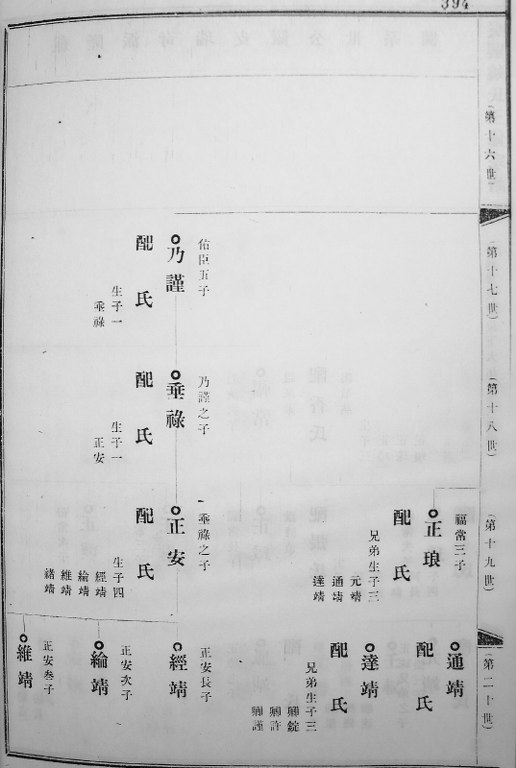 394
(第十六世)
(第十七世)
(第十八世)
(第十九世)
(第二十世)
佑臣五子
乃謹
配氏
生子一
垂祿
乃謹之子
垂祿
配氏
生子一
正安
福常三子
正琅
配氏
兄弟生子三
元靖
通靖
達靖
垂祿之子
正安
配氏
生子四
經靖
綸靖
維靖
緒靖
通靖
配氏
達靖
配氏
兄弟生子三
卿錠
卿許
卿謹
正安長子
經靖
正安次子
綸靖
正安叁子
維靖